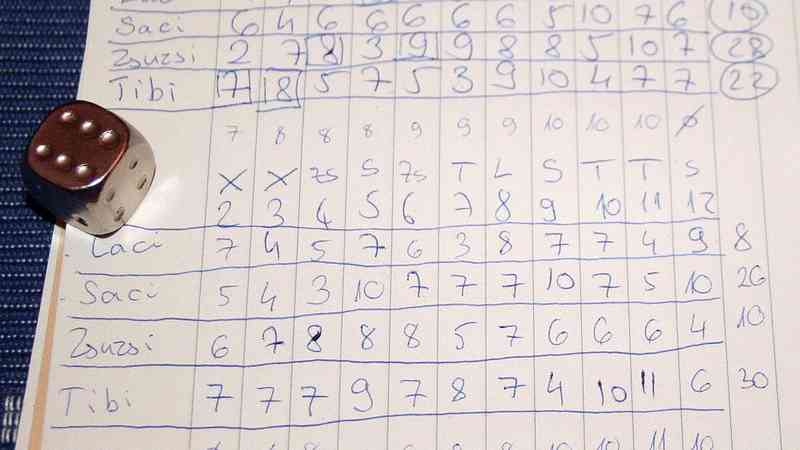 Saci 6 4 6 6 6 6 6 5 10 7 6 10
Zsuzsi 2 7 8 3 9 9 8 8 5 10 7 28
Tibi 7 18 5 7 5 3 9 10 4 7 7 22
7 8 8 8 9 9 9 10 10 10 ø
X X ZS S ZS T L S T T S
2 3 4 5 6 7 8 9 10 11 12
Laci 7 4 5 7 6 3 8 7 7 4 9 8
Saci 5 4 3 10 7 7 7 10 7 5 10 26
Zsuzsi 6 7 8 8 8 5 7 6 6 6 4 10
Tibi 7 7 7 9 7 8 7 4 10 11 6 30